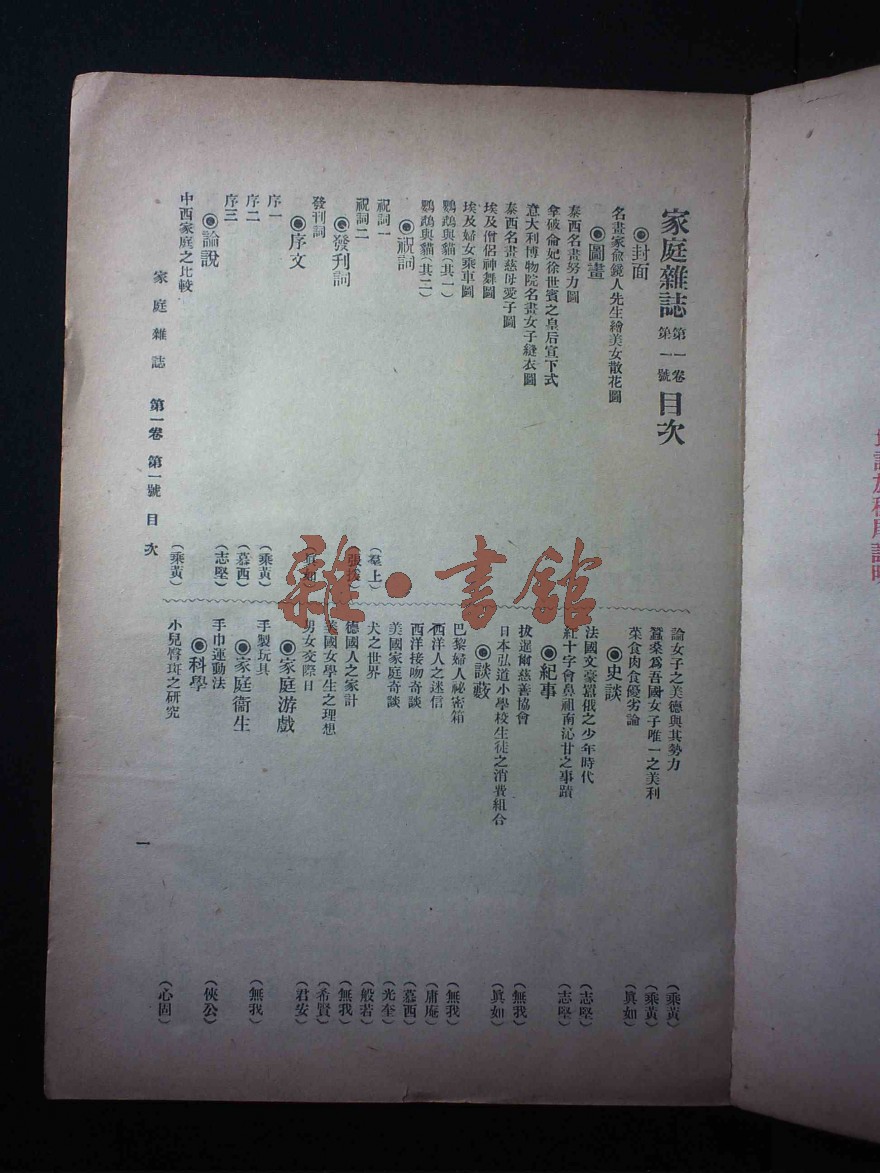 家庭雜誌 第一卷 第一號 目次
◉封面
名畫家俞鏡人先生繪美女散花圖
◉圖畫
泰西名畫努力圖
拿破侖妃徐世賓之皇后宣下式
意大利博物院名畫女子縫衣圖
泰西名畫慈母愛子圖
埃及僧侶神舞圖
埃及婦女乘車圖
鸚鵡與貓(其一)
鸚鵡與貓(其二)
◉祝詞
祝詞一 (羣上)
祝詞二
◉發刊詞
發刊詞
◉序文
序一 (乘黃)
序二 (慕西)
序三 (志堅)
◉論說
中西家庭之比較 (乘黃)
論女子之美德與其勢力 (乘黃)
蠶桑爲吾國女子唯一之美利 (乘黃)
菜食肉食優劣論 (眞如)
◉史談
法國文豪囂俄之少年時代 (志堅)
紅十字會鼻祖南沁甘之事蹟 (志堅)
◉紀事
拔選爾慈善協會 (無我)
日本弘道小學校生徒之消費組合 (眞如)
◉談藪
巴黎婦人祕密箱 (無我)
西洋人之迷信 (庸庵)
西洋接吻奇談 (慕西)
美國家庭奇談 (光奎)
犬之世界 (般若)
德國人之家計 (無我)
美國女學生之理想 (希賢)
男女交際日 (君安)
◉家庭游戲
手製玩具 (無我)
◉家庭衞生
手巾運動法 (俠公)
◉科學
小兒臀斑之研究 (心固)
家庭雜誌 第一卷 第一號 目次
一
雜·書館